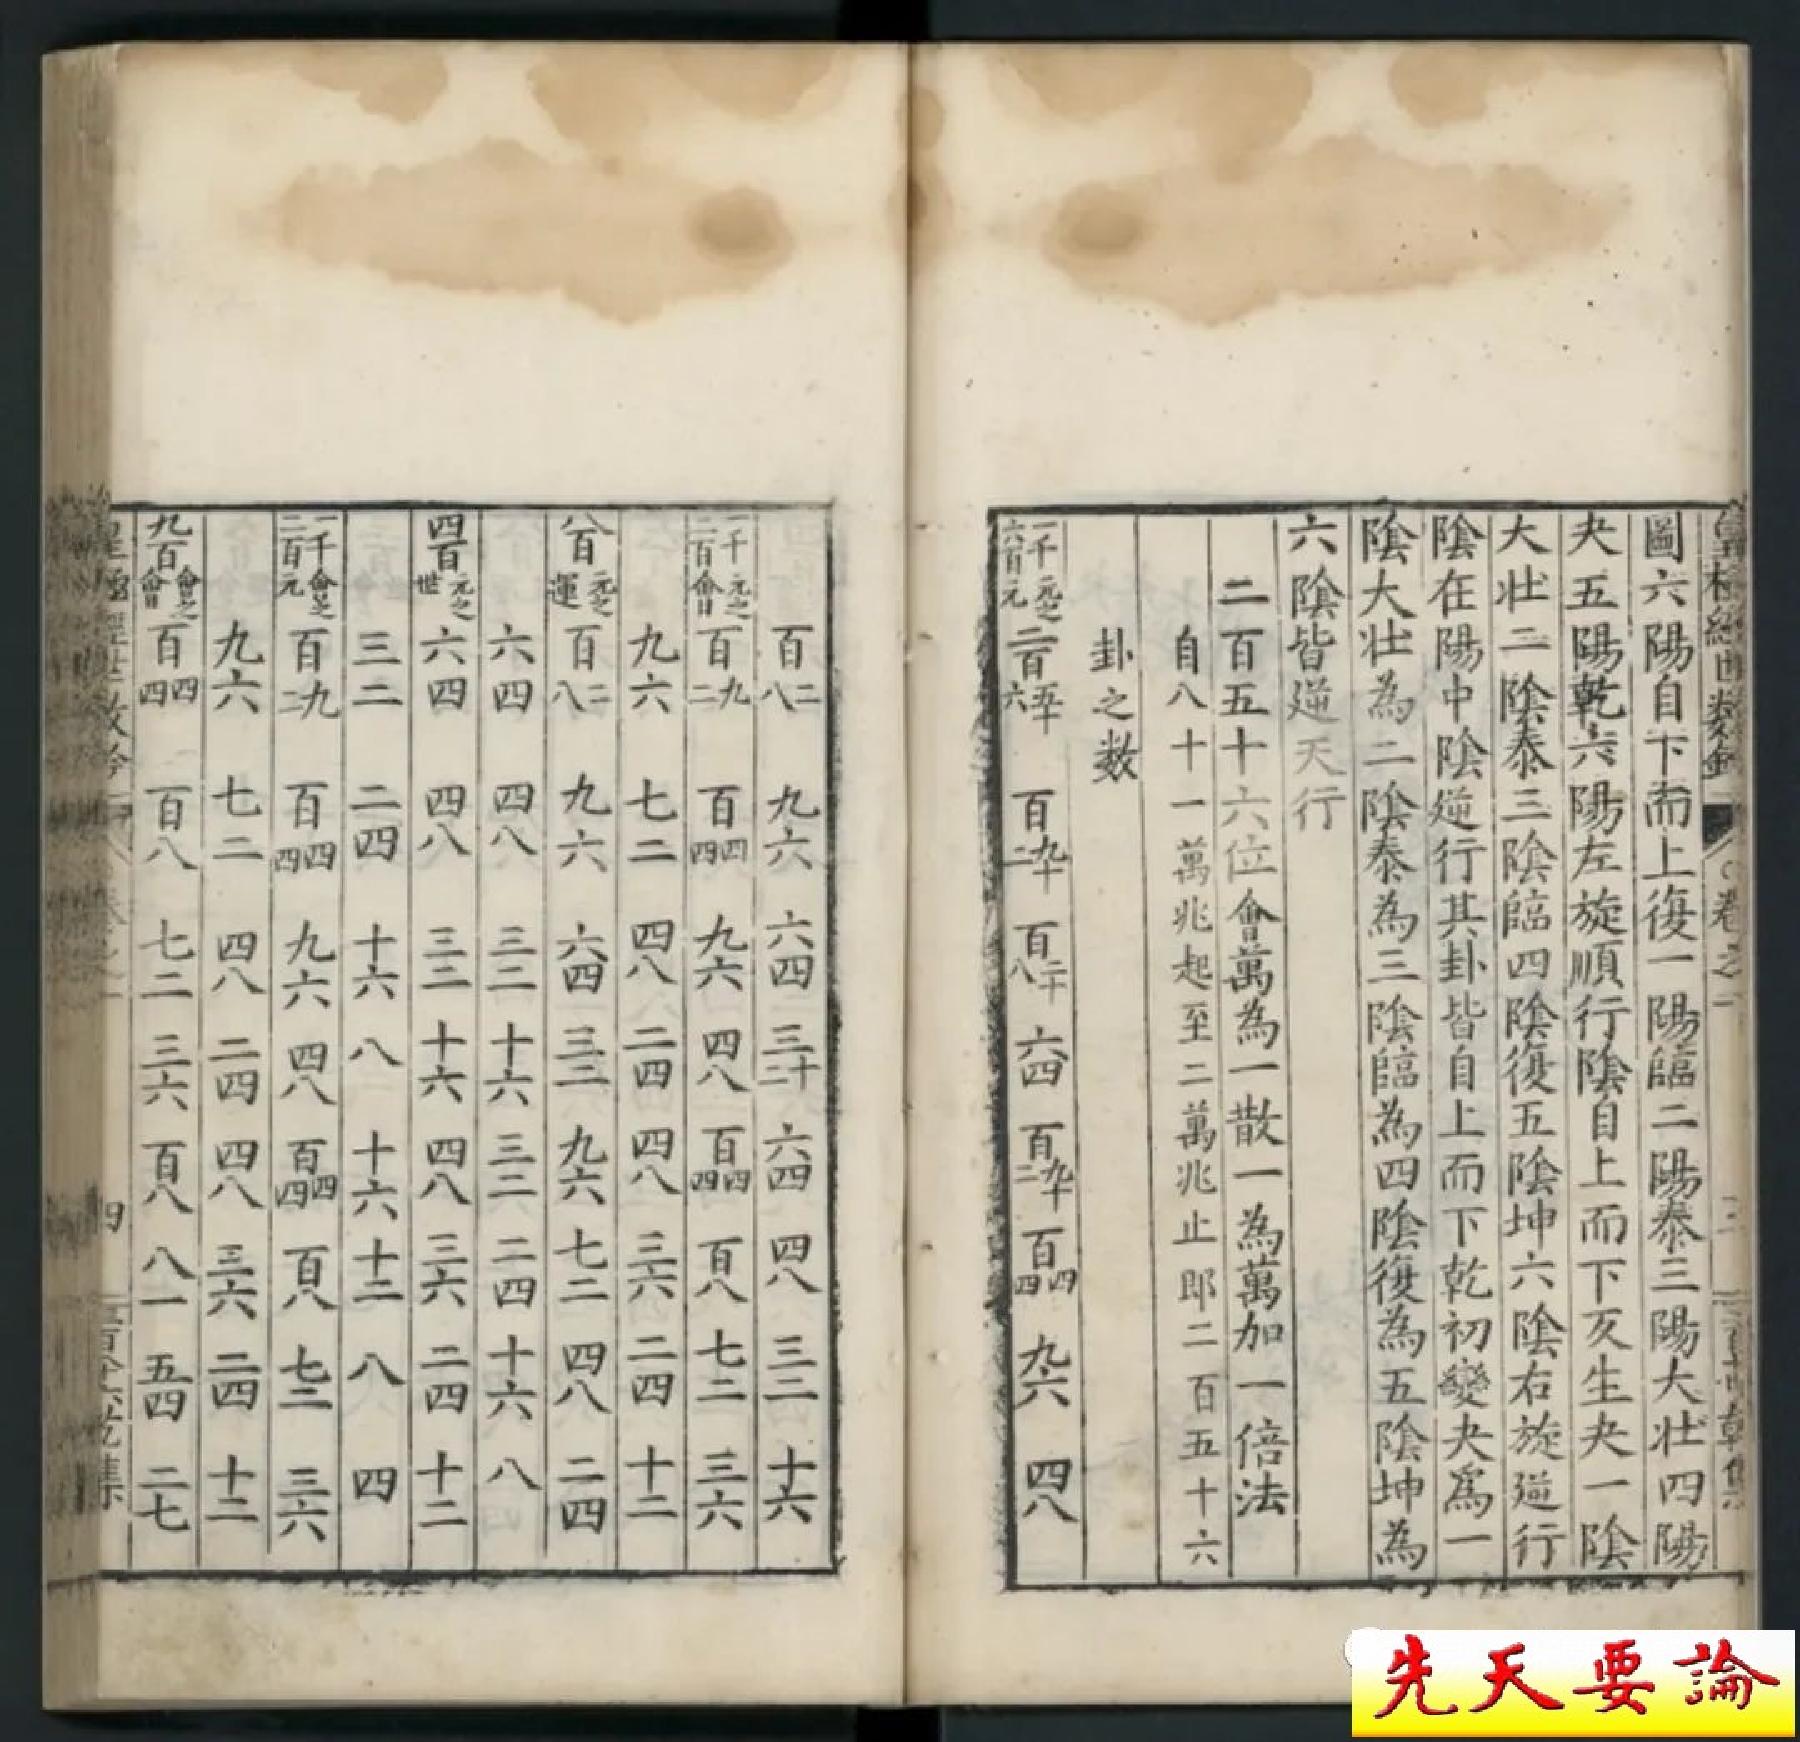 圖六陽自下而上復一陽臨二陽泰三陽大壯四陽
夬五陽乾六陽左旋順行陰自上而下亥生夬一陰
大壯二陰泰三陰臨四陰復五陰坤六陰右旋逆行
陰在陽中陰逆行其卦皆自上而下乾初變夬爲一
陰大壯為二陰泰為三陰臨為四陰復為五陰坤為
六陰皆逆天行
二百五十六位會萬為一散一為萬加一倍法
自八十一萬兆起至二萬兆止郎二百五十六
卦之数
一千六百元 元之 二百五十六 百九十二 百二十八 六四 百九十二 百四四 九六 四八
百二八 九六 六四 三十二 六四 四八 三二 十六
一千二百會 元之 百九二 百四四 九六 四八 百四四 百八 七二 三六
九六 七二 四八 二四 四八 三六 二四 十二
八百運 元之 百二八 九六 六四 三二 九六 七二 四八 二四
六四 四八 三二 十六 三二 二四 十六 八
四百世 元之 六四 四八 三二 十六 四八 三六 二四 十二
三二 二四 十六 八 十六 十二 八 四
一千二百元 會之 百九二 百四四 九六 四八 百四四 百八 七二 三六
九六 七二 四八 二四 四八 三六 二四 十二
九百會 會之 百四四 百八 七二 三六 百八 八一 五四 二七
四
先天要論